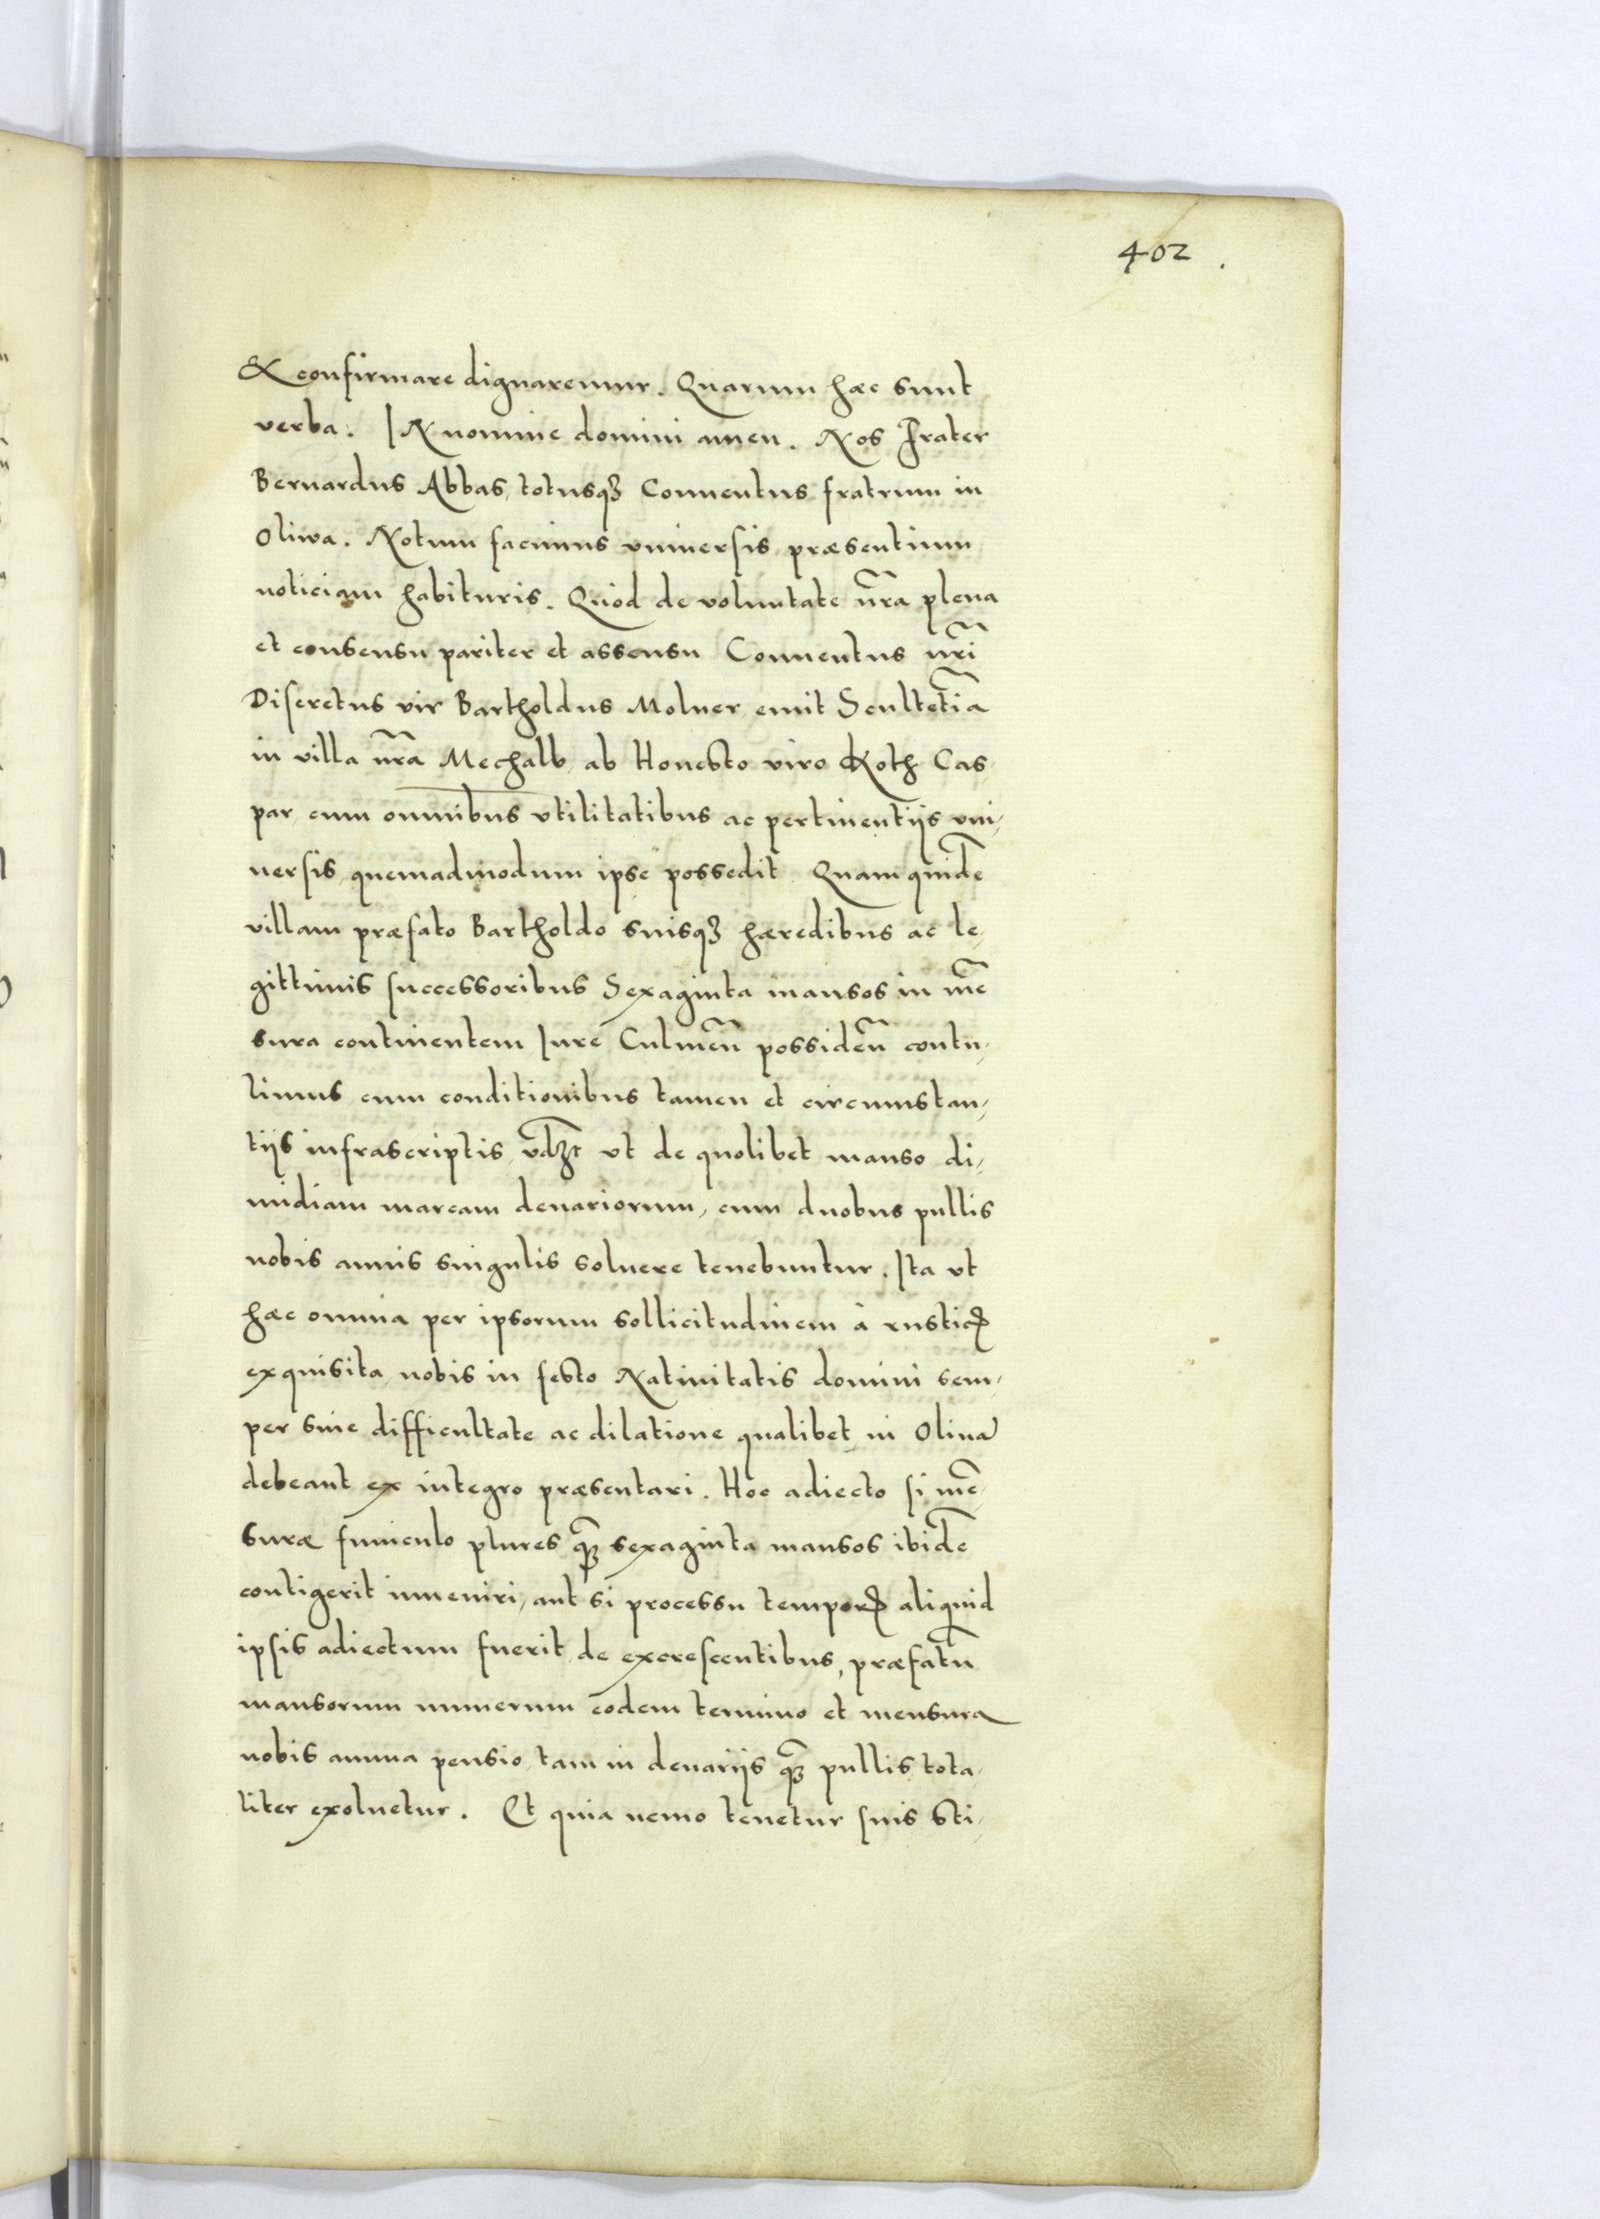 402
& confirmare dignaremur. Quarum hæc sunt
verba. IN nomine domini amen. Nos Frater
Bernardus Abbas, totusqꝫ Conuentus fratrum in
Oliwa. Notum facimus vniuersis præsentium
noticiam habituris. Quod de voluntate nr̃a plena
et consensu pariter et assensu Conuentus nr̃i
Discretus vir Bartholdus Molner emit Scultetiã
in villa nr̃a Mechalb ab Honesto viro Roth Cas-
par cum omnibus vtilitatibus ac pertinentijs vni-
uersis quemadmodum ipse possedit Quam quidẽ
villam præfato Bartholdo suisqꝫ hæredibus ac le-
gittimis successoribus Sexaginta mansos in mẽ
sura continentem Iure Culmeñ possideñ contu-
limus cum conditionibus tamen et circumstan-
tijs infrascriptis, vdꝫt vt de quolibet manso di-
midiam marcam denariorum, cum duobus pullis
nobis annis singulis soluere tenebuntur. Ita vt
hæc omnia per ipsorum sollicitudinem à rusticꝭ
exquisita nobis in festo Natiuitatis domini sem-
per sine difficultate ac dilatione qualibet in Oliua
debeant ex integro præsentari. Hoc adiecto si mẽ-
suræ funiculo plures qꝫ̃ sexaginta mansos ibidẽ
contigerit inueniri, aut si processu temporꝭ aliquid
ipsis adiectum fuerit de excrescentibus, præfatũ
mansorum numerum eodem termino et mensura
nobis annua pensio, tam in denarijs qꝫ̃ pullis tota-
liter exoluetur. Et quia nemo tenetur suis sti-